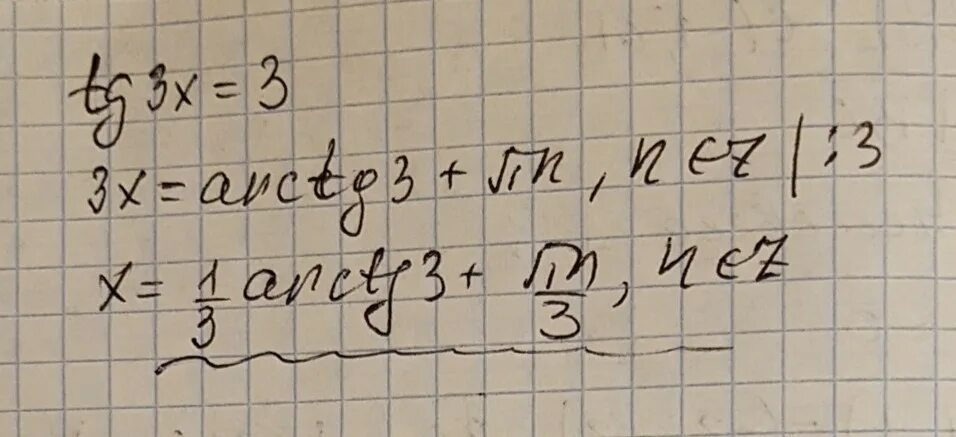 tg 3x = 3
3x = arctg 3 + πn, n ∈ z | : 3
x = 1/3 arctg 3 + πn/3, n ∈ z